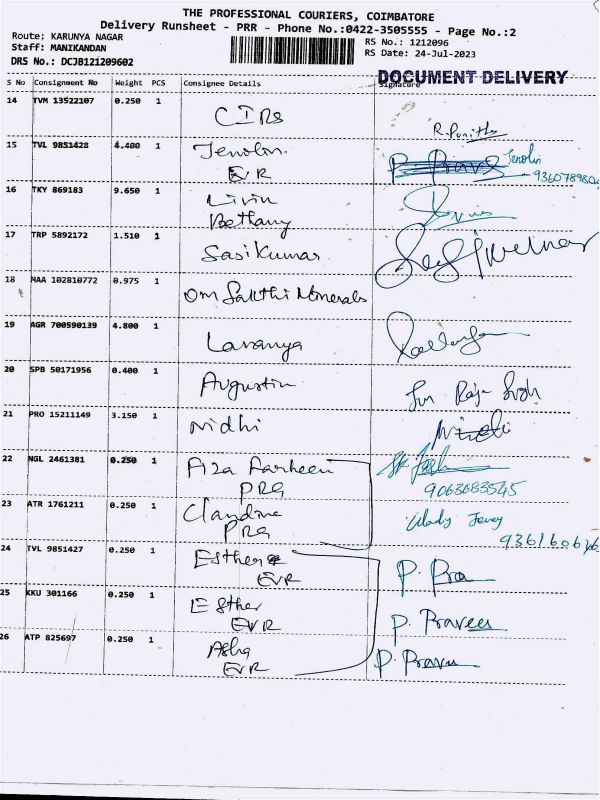 THE PROFESSIONAL COURIERS, COIMBATORE
Delivery Runsheet - PRR - Phone No.:0422-3505555 - Page No.:2
Route; KARUNYA NAGAR
Staff: MANIKANDAN
DRS No.: DCJB121209602
RS No.: 1212096
RS Date: 24-Jul-2023
DOCUMENT DELIVERY
S No Consignment No Weight PCS Consignee Details Signature
14 TVM 13522107 0.250 1 CIRs
R. Punitha
15 TVL 9851428 4.400 1 Jenolin Jenolin
EVR
16 TKY 869183 9.650 1 Livin
Bethany
17 TRP 5892172 1.510 1 Sasikumar
18 MAA 102810772 0.975 1 Om Sakthi Minerals
19 AGR 700590139 4.800 1 Lavanya
20 SPB 50171956 0.400 1 Augustin
21 PRO 15211149 3.150 1 Nidhi Nidhi
22 NGL 2461381 0.250 1 Aiza Farheen
PRG 9063683545
23 ATR 1761211 0.250 1 Claudine
PRG
24 TVL 9851427 0.250 1 Esther
EVR P. Pra
25 KKU 301166 0.250 1 Esther
EVR P. Praveen
26 ATP 825697 0.250 1 Asha
EVR P. Pravin